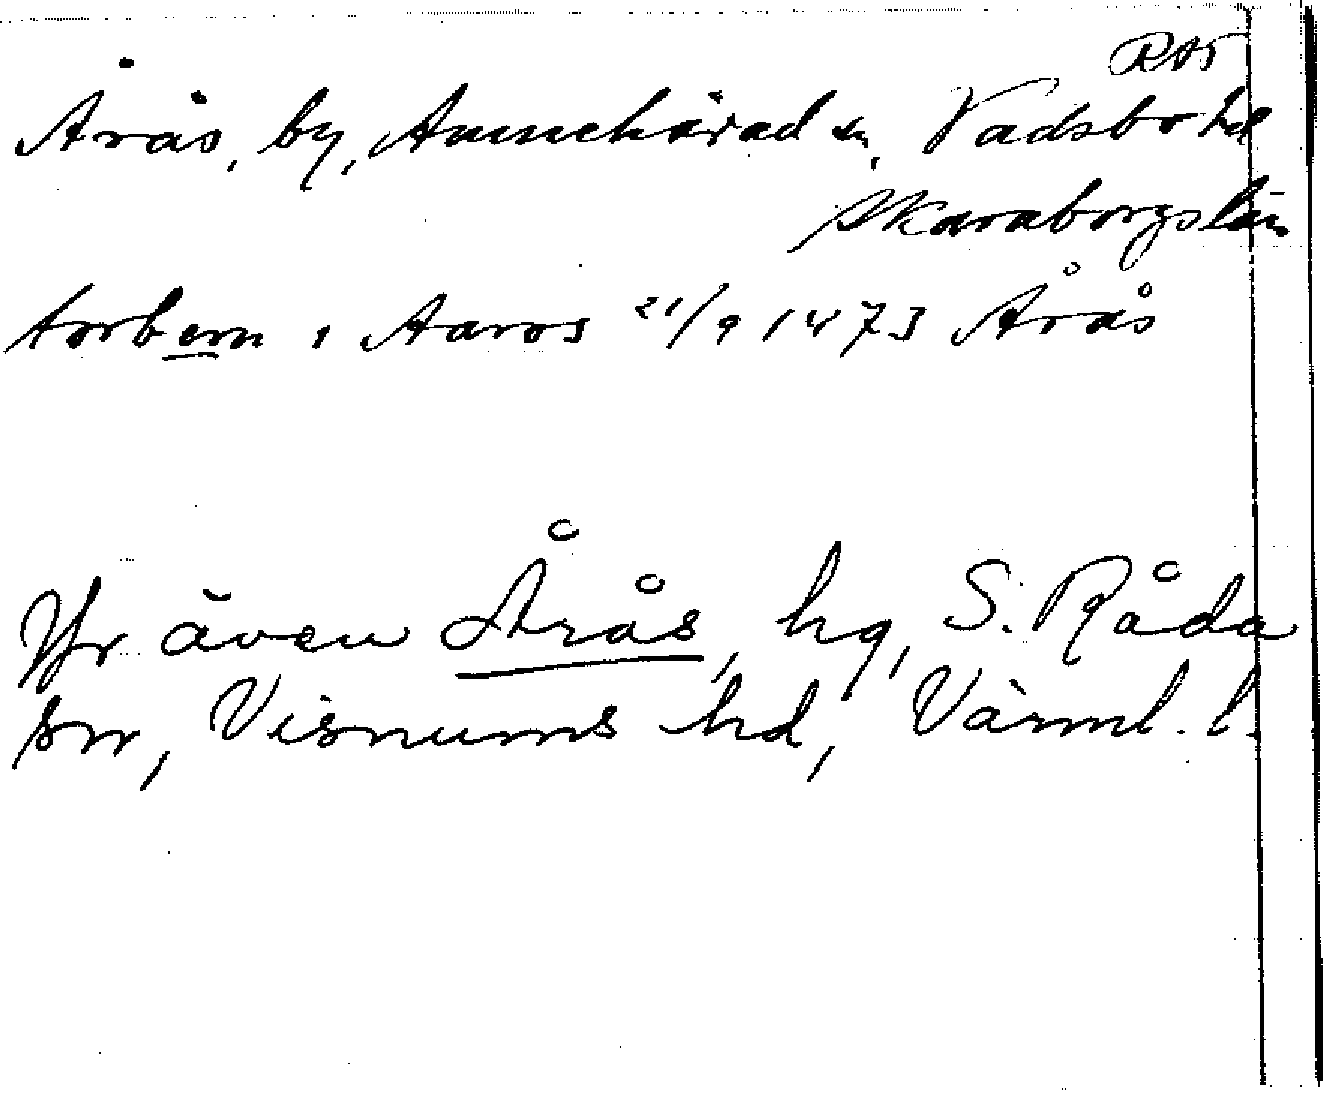 Årås, by, Amnehärad sn, Vadsbo hd
Skaraborgs län
torbern i Aaros 21/9 1473 Årås
Jfr även Årås, hg, S. Råda
sn, Visnums hd, Värml. l.